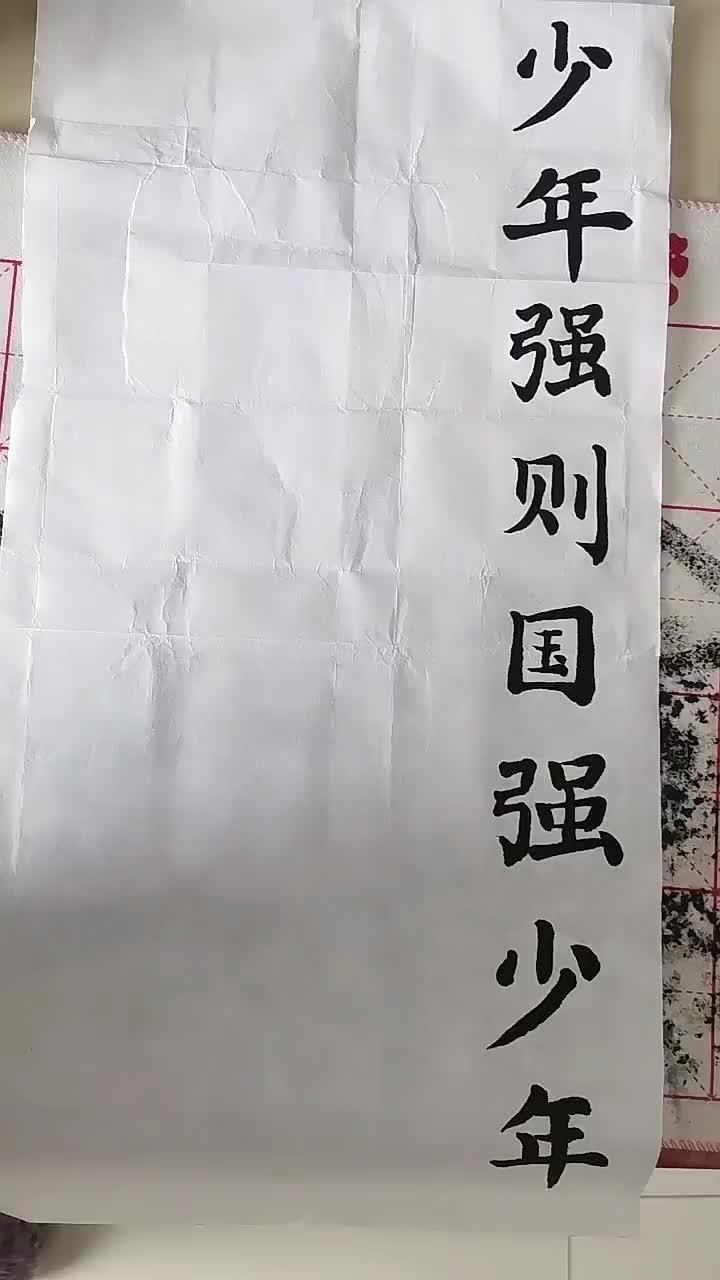 少年强则国强少年